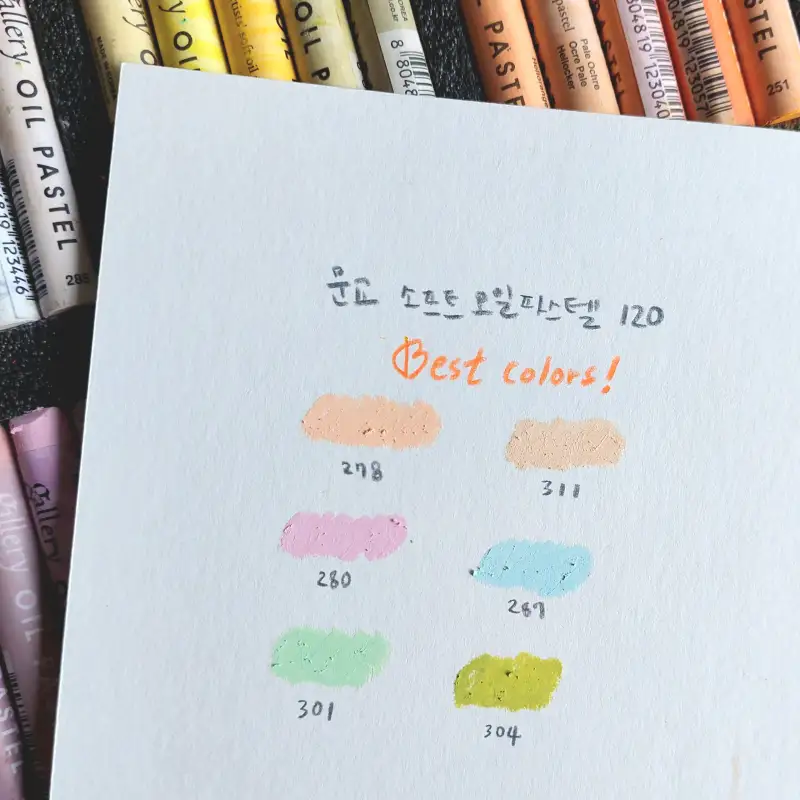 Gallery OIL PASTEL
285
819 123446
Artists' soft oil
OIL
8 8048
PASTEL
pastel
Pale Ochre
Ocre Pale
Hellocker
804819 123040
804819 12305
PASTEL
251
문교 소프트오일파스텔 120
Best colors!
278
311
280
287
301
304
Gallery
Gallery OIL